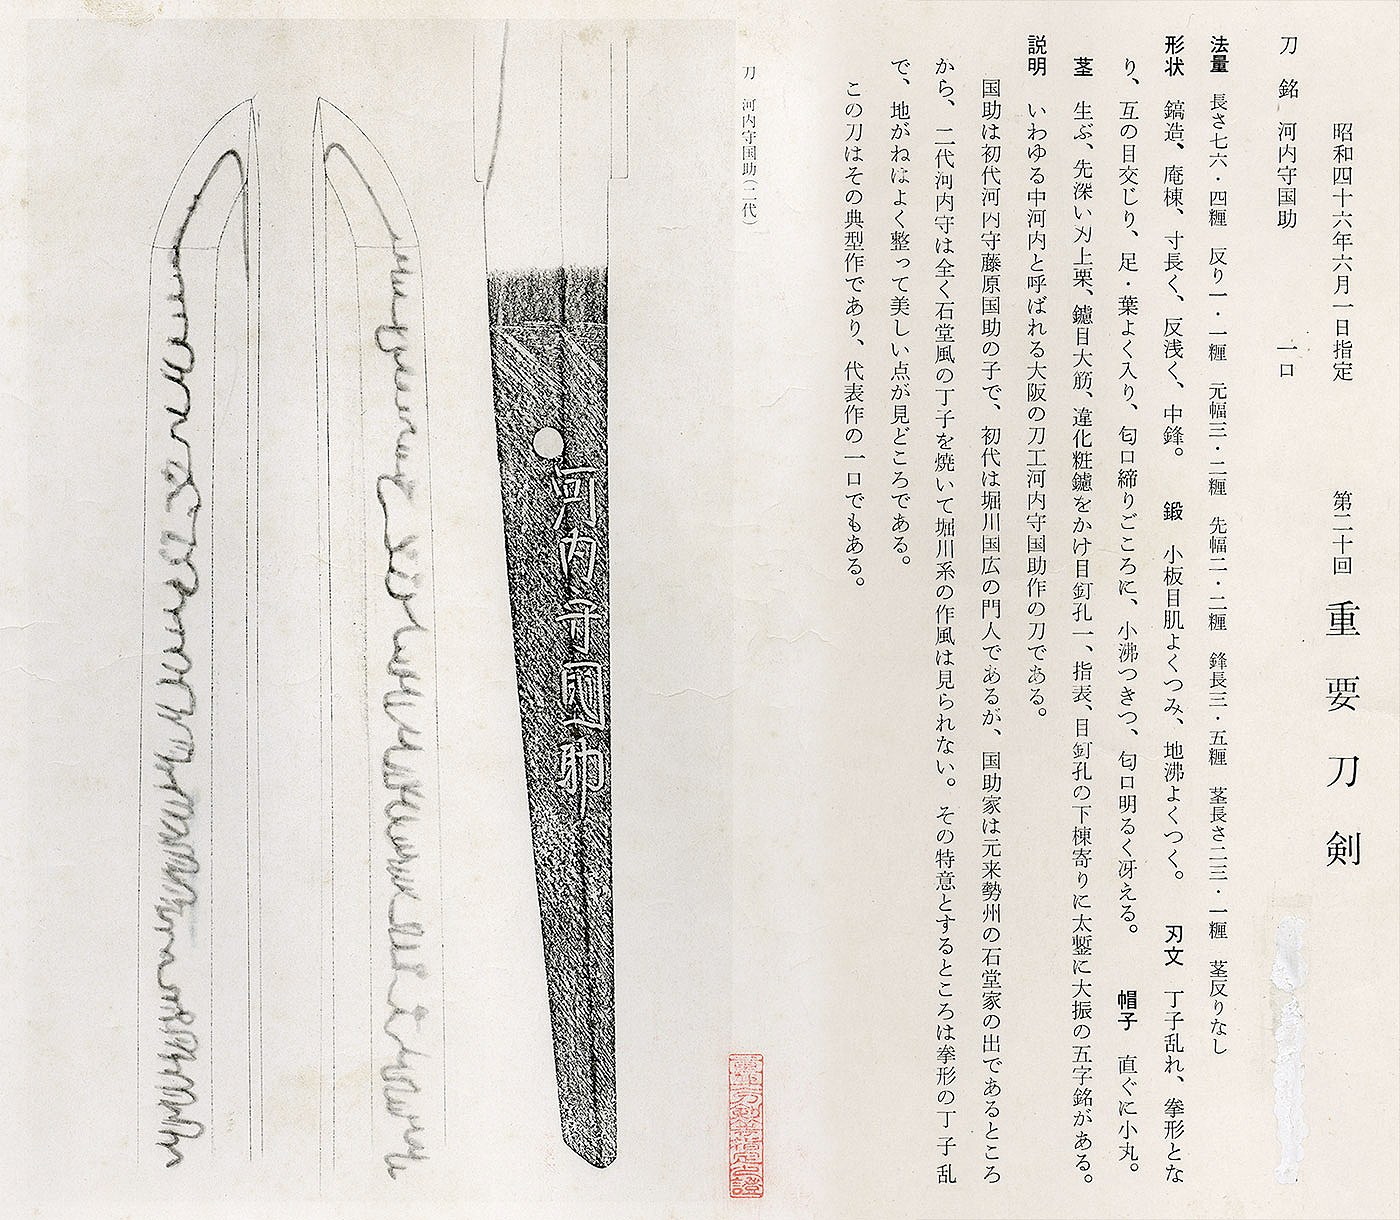 昭和四十六年六月一日指定　第二十回　重要刀剣
刀　銘　河内守国助　一口
法量　長さ七六・四糎　反り一・一糎　元幅三・二糎　先幅二・二糎　鋒長三・五糎　茎長さ二三・一糎　茎反りなし
形状　鎬造、庵棟、寸長く、反浅く、中鋒。　鍛　小板目肌よくつみ、地沸よくつく。　刃文　丁子乱れ、拳形とな
り、互の目交じり、足・葉よく入り、匂口締りごころに、小沸つきつ、匂口明るく冴える。　帽子　直ぐに小丸。
茎　生ぶ、先深い刃上栗、鑢目大筋、違化粧鑢をかけ目釘孔一、指表、目釘孔の下棟寄りに太鏨に大振の五字銘がある。
説明　いわゆる中河内と呼ばれる大阪の刀工河内守国助作の刀である。
国助は初代河内守藤原国助の子で、初代は堀川国広の門人であるが、国助家は元来勢州の石堂家の出であるところ
から、二代河内守は全く石堂風の丁子を焼いて堀川系の作風は見られない。その特意とするところは拳形の丁子乱
で、地がねはよく整って美しい点が見どころである。
この刀はその典型作であり、代表作の一口でもある。
刀　河内守国助（二代）
河内守國助
重要刀剣等指定之證